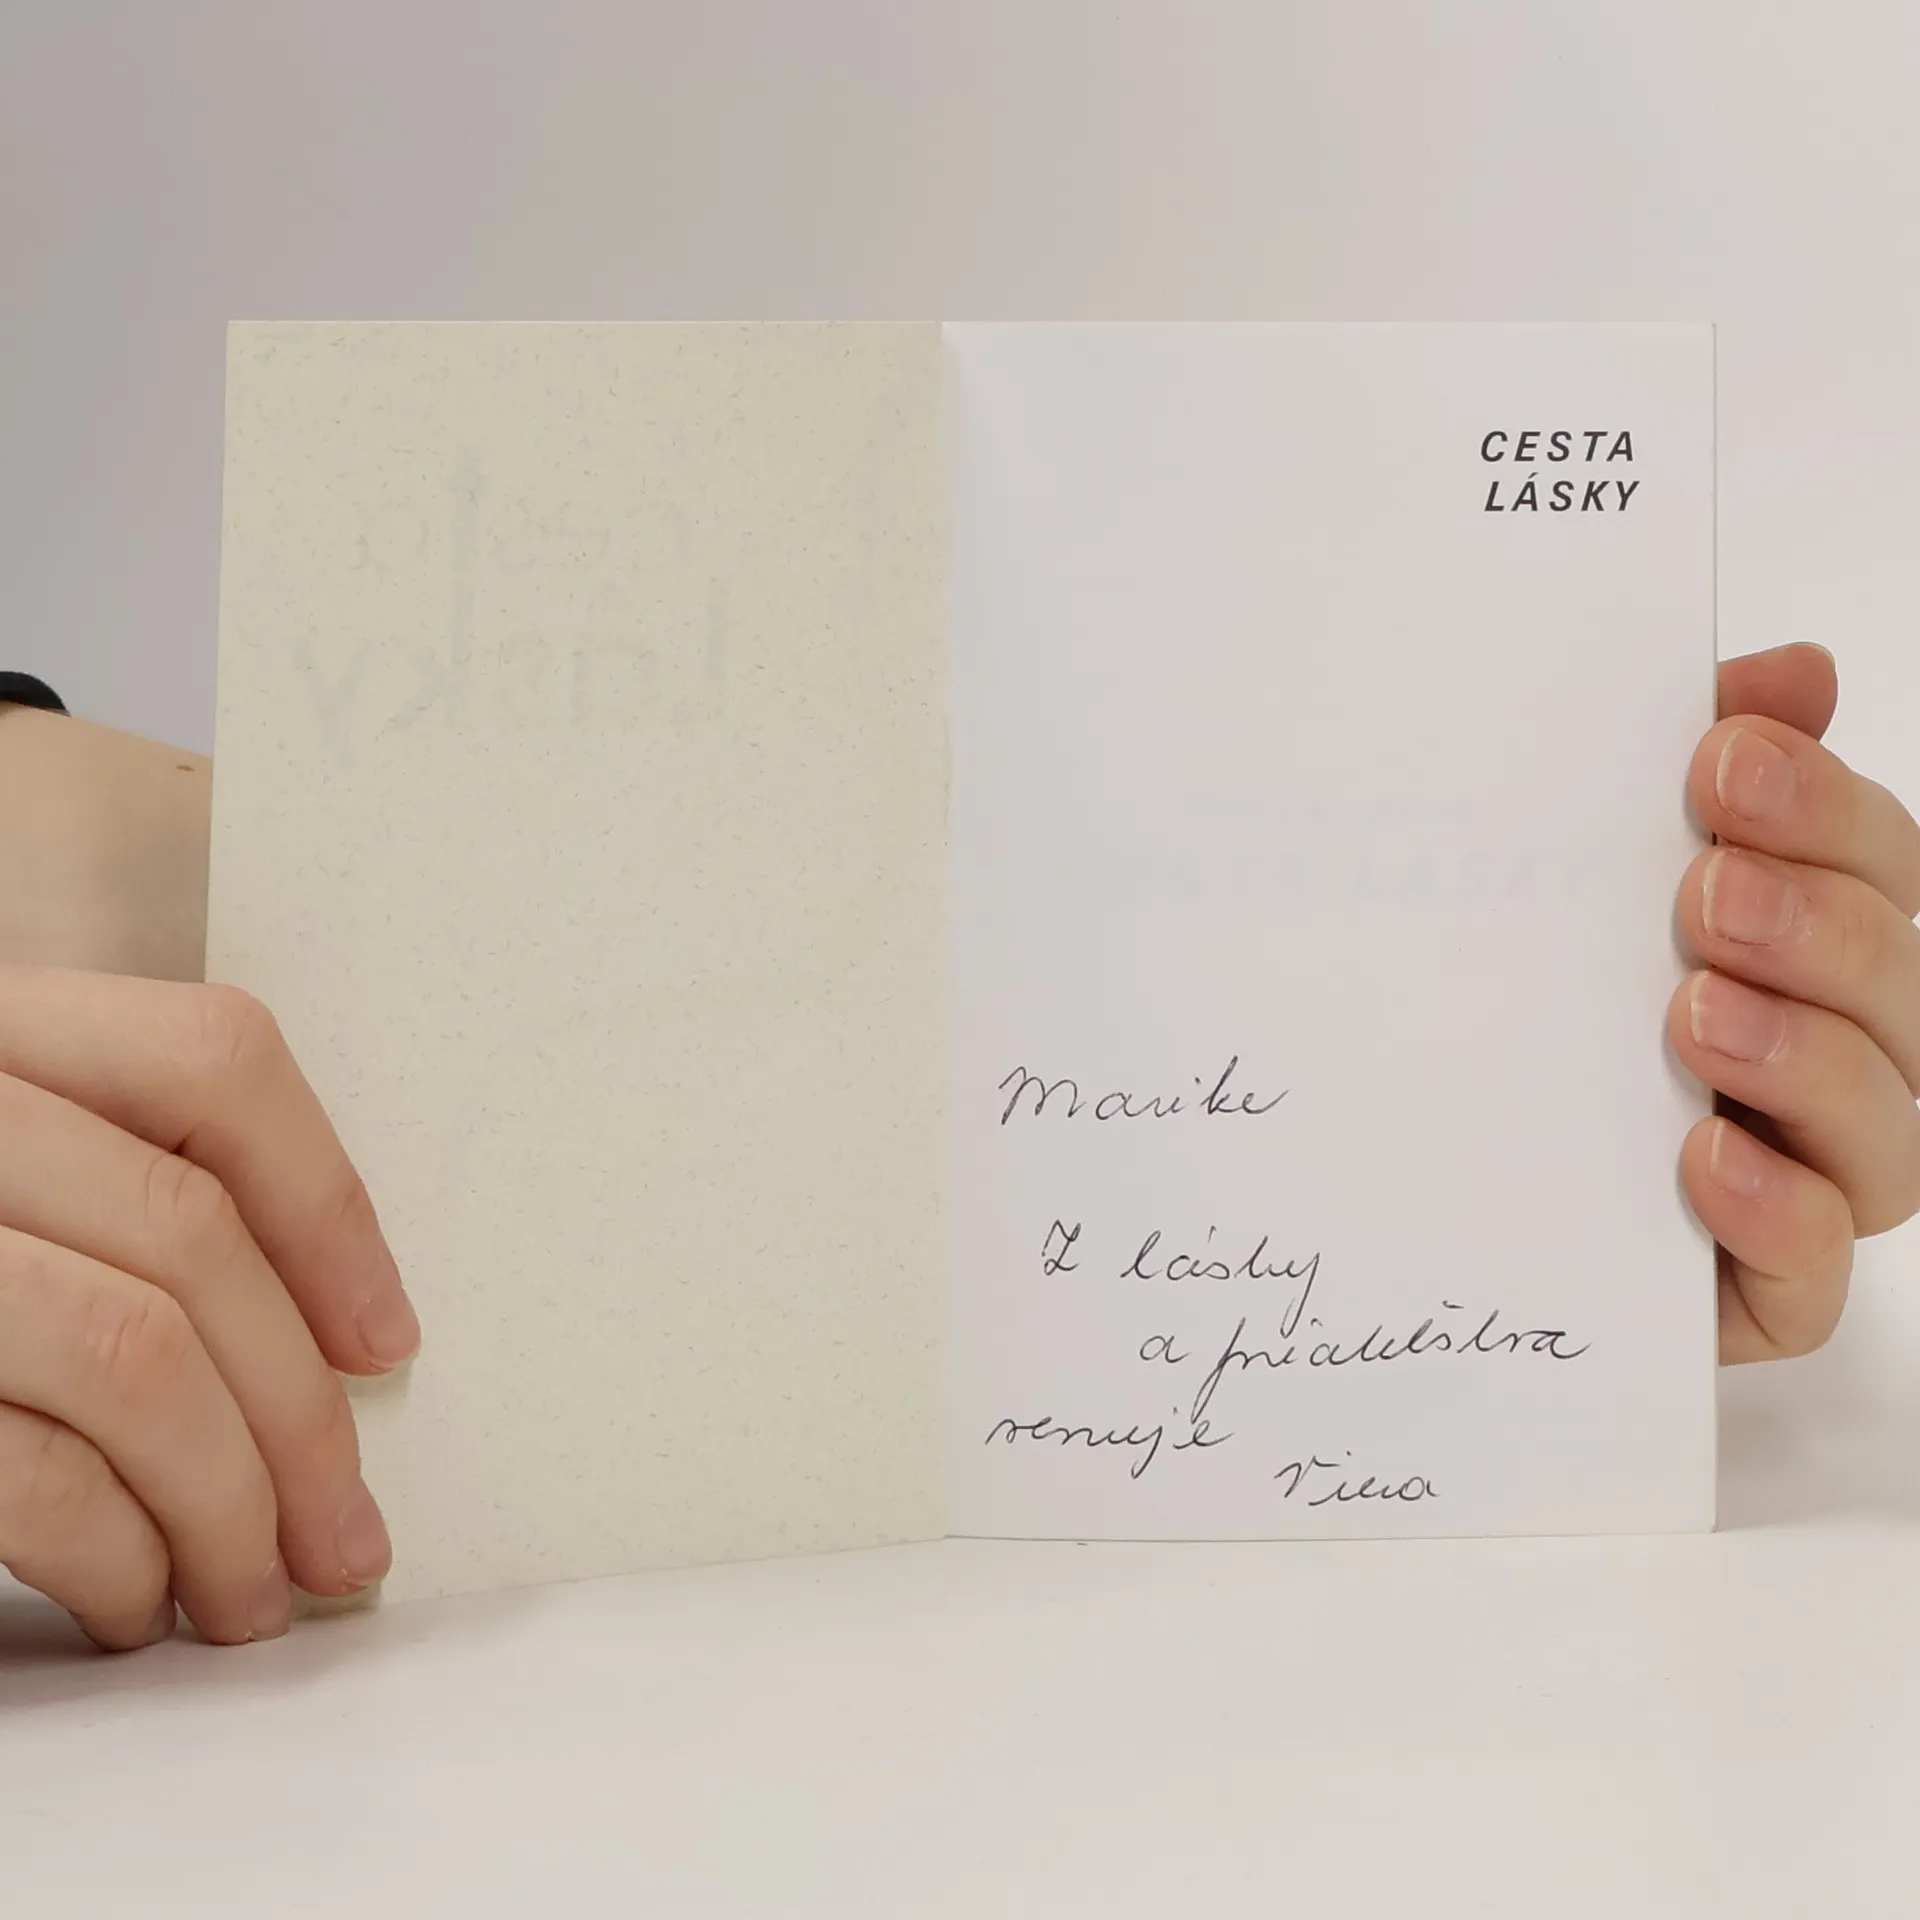 CESTA
LÁSKY
Marike
Z lásky
a priateľstva
venuje
Viera